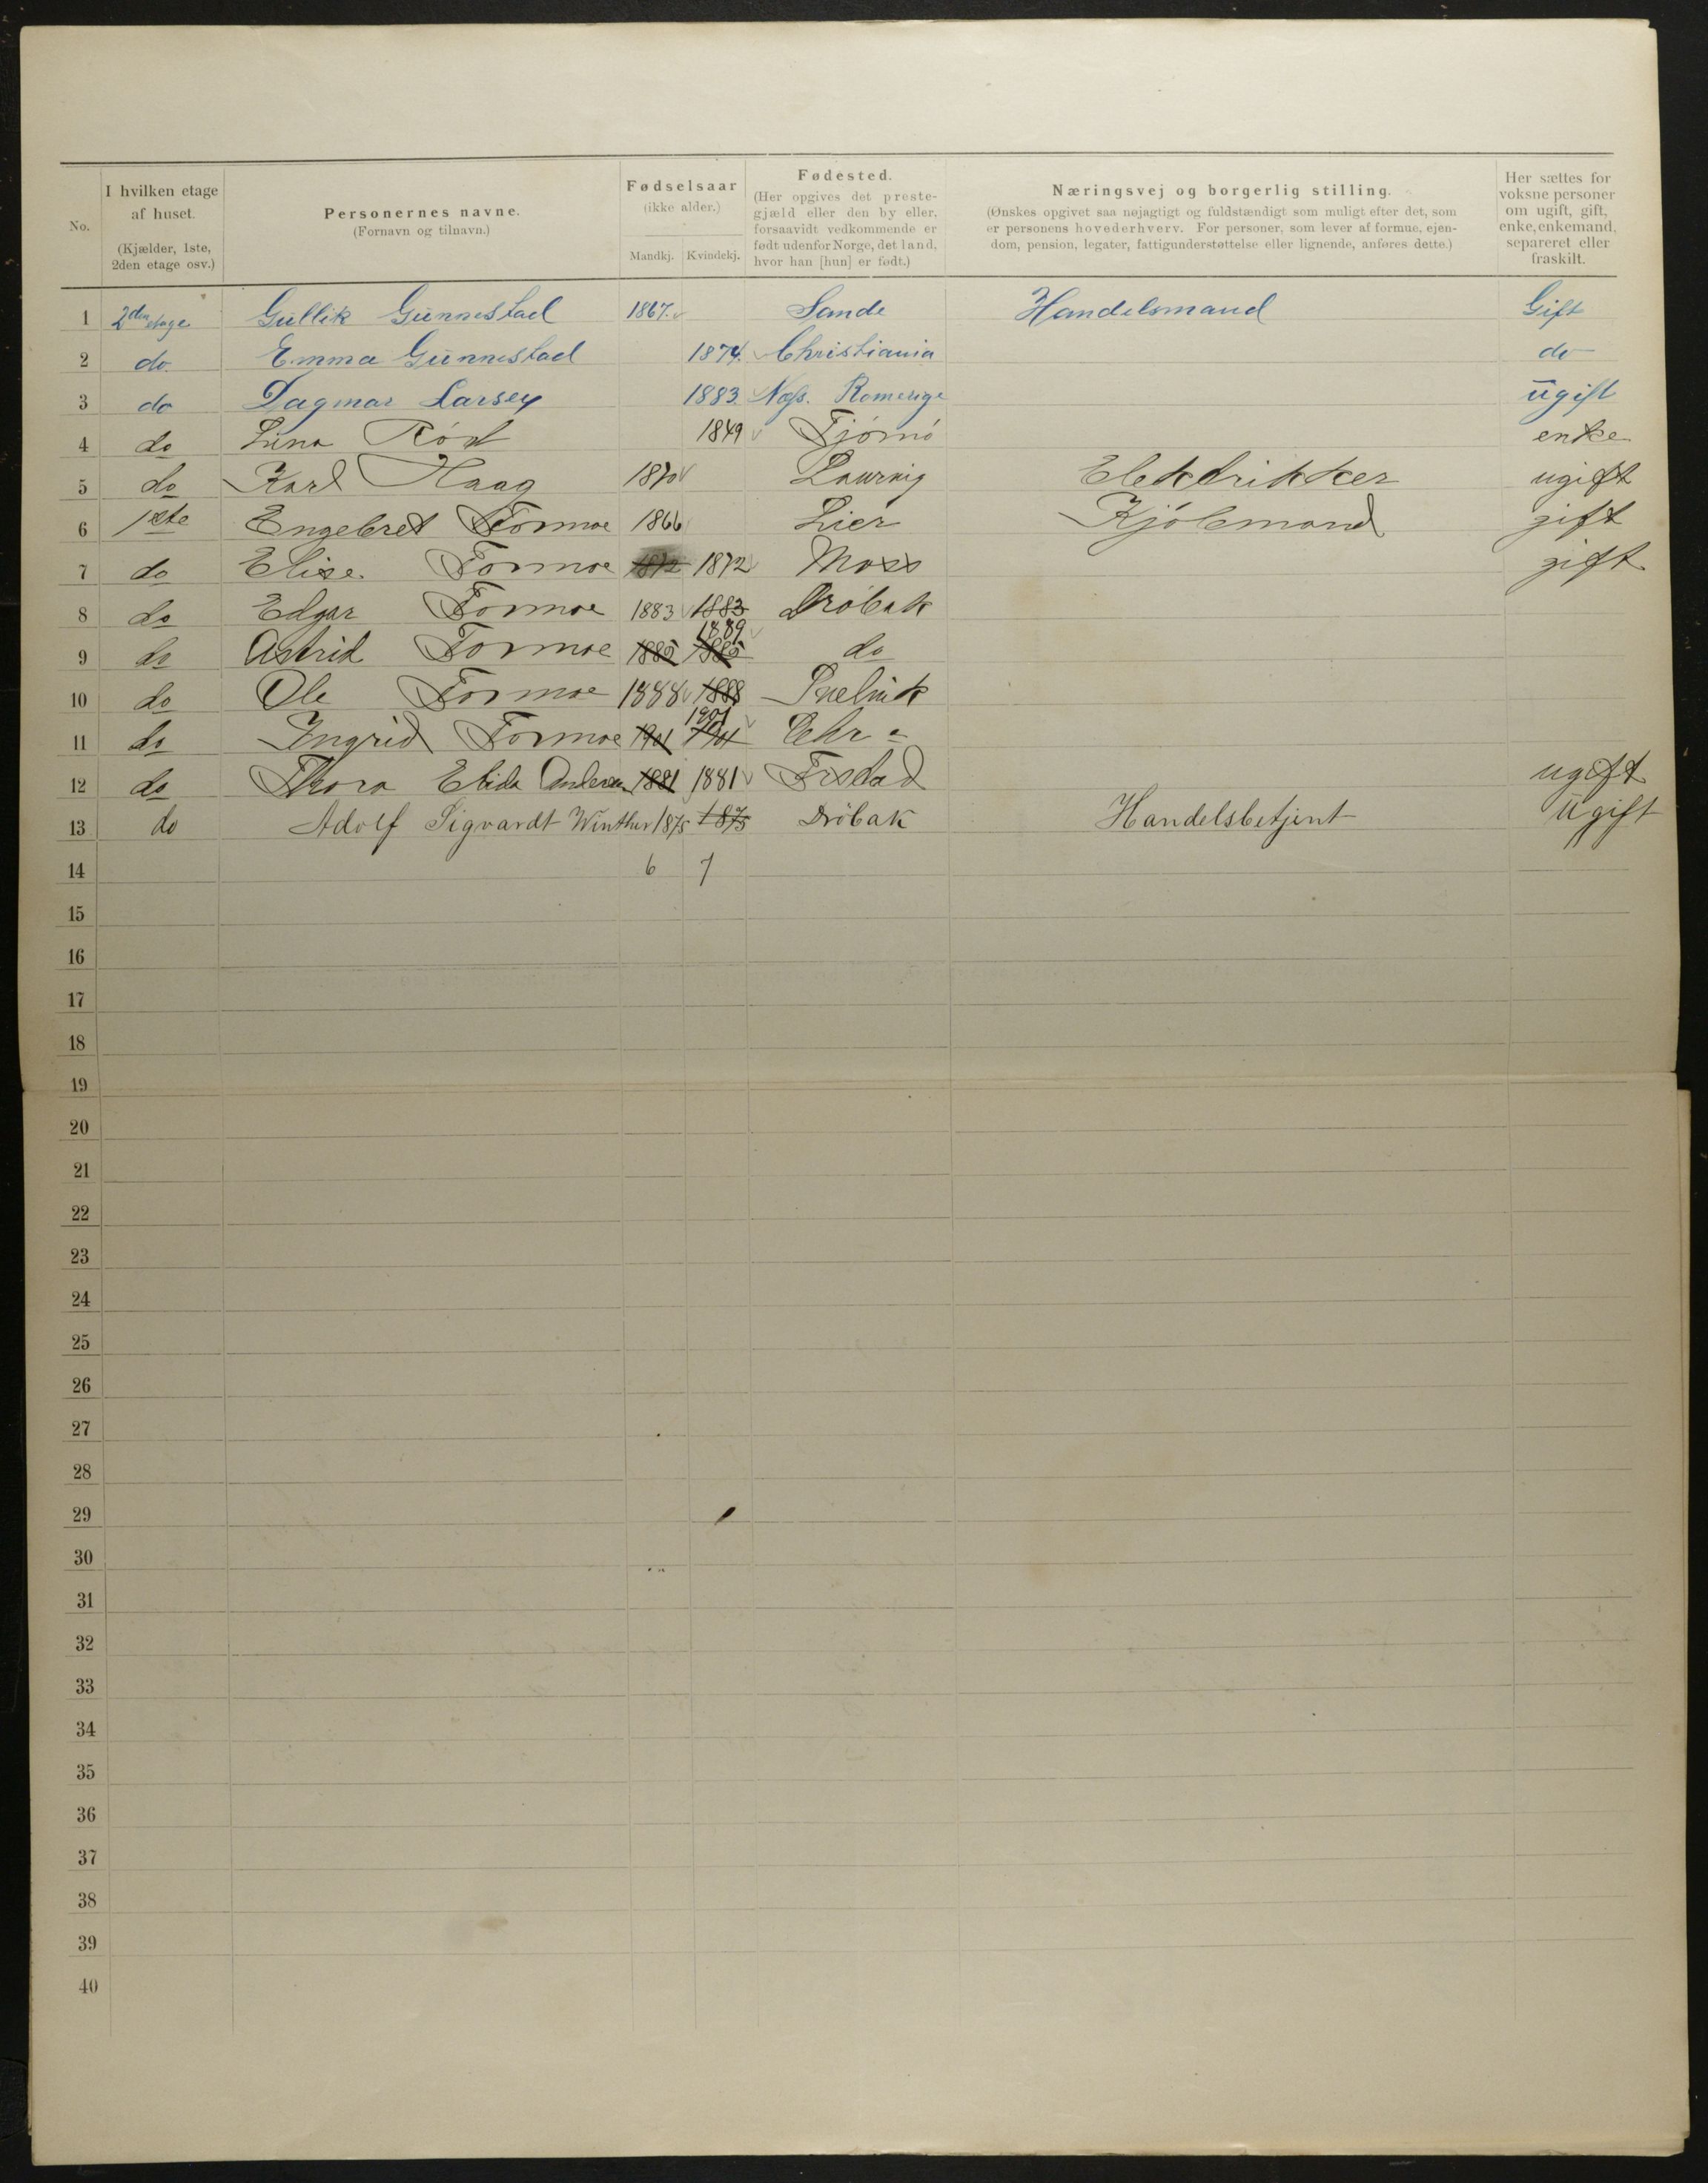 No.
I hvilken etage af huset. (Kjælder, 1ste, 2den etage osv.)
Personernes navne. (Fornavn og tilnavn.)
Fødselsaar (ikke alder.) Mandkj. Kvindekj.
Fødested. (Her opgives det prestegjæld eller den by eller, forsaavidt vedkommende er født udenfor Norge, det land, hvor han [hun] er født.)
Næringsvej og borgerlig stilling. (Ønskes opgivet saa nøjagtigt og fuldstændigt som muligt efter det, som er personens hovederhverv. For personer, som lever af formue, ejendom, pension, legater, fattigunderstøttelse eller lignende, anføres dette.)
Her sættes for voksne personer om ugift, gift, enke, enkemand, separeret eller fraskilt.
1 2den etage Gullik Gunnestad 1867. Sande Handelsmand Gift
2 do. Emma Gunnestad 1874. Christiania do
3 do Dagmar Larsen 1883 Næs. Romerige ugift
4 do Lina Rød 1849 Tjømø enke
5 do Karl Haag 1870 Laurvig Elektrikker ugift
6 1ste Engebret Formoe 1866 Lier Kjøbmand gift
7 do Elise Formoe 1872 1872 Moss gift
8 do Edgar Formoe 1883 1883 Drøbak
9 do Astrid Formoe 1885 1885 1889 do
10 do Ole Formoe 1888 1888
11 do Ingrid Formoe 1901 1901 1901 Chr a
12 do Thora Elida Andersen 1881 1881 ugift
13 do Adolf Sigvardt Winther 1875 1875 Drøbak Handelsbetjent Ugift
14 6 7
15
16
17
18
19
20
21
22
23
24
25
26
27
28
29
30
31
32
33
34
35
36
37
38
39
40